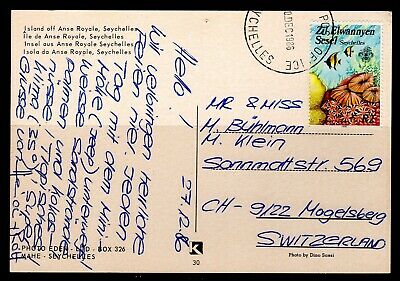 Island off Anse Royale, Seychelles
Ile de Anse Royale, Seychelles
Insel aus Anse Royale, Seychelles
Isola da Anse Royale, Seychelles
Hello! 27.12.86
Wir verbringen herrliche
Ferien hier. Jeden
Tag mit dem Mini
Moke (Jeep) unterwegs
weisse Sandstrände
Palmen und Kokos-
nüsse, Tropisches
Klima (35°),
Grüsse von
PHOTO EDEN - LTD - BOX 326
MAHE - SEYCHELLES
30
K
SEYCHELLES
DEC 1986
POST OFFICE
Zil Elwannyen
Sesel Seychelles
MR & MISS
H. Bühlmann
M. Klein
Sonnmattstr 569
CH-9122 Mogelsberg
SWITZERLAND
Photo by Dino Sassi